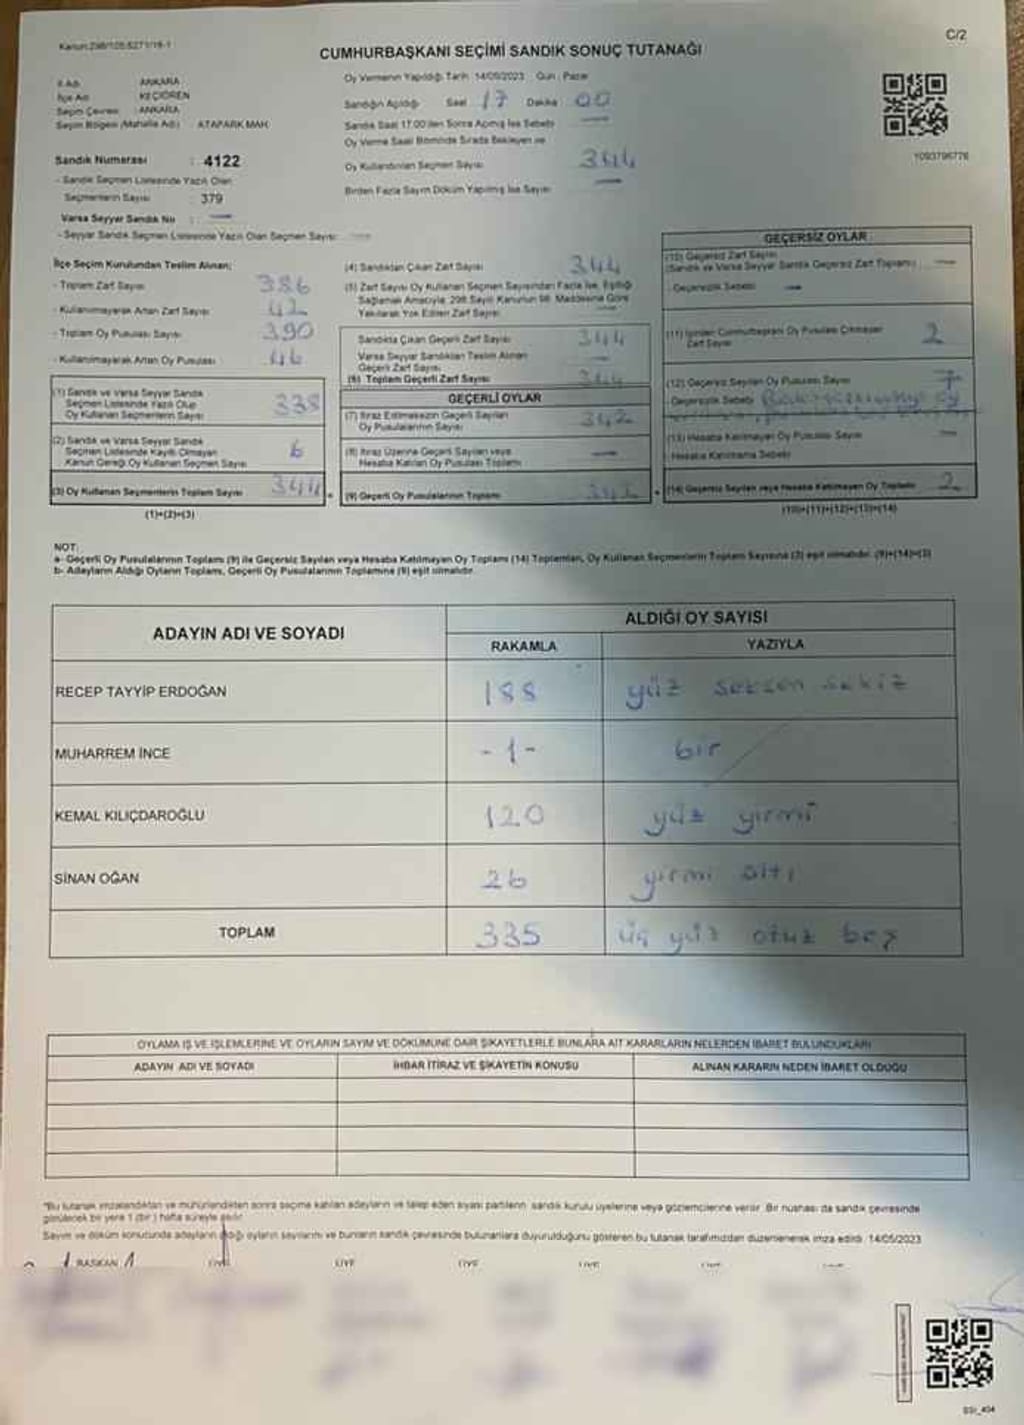 Kanun:298/125.6271/16-1
C/2
CUMHURBAŞKANI SEÇİMİ SANDIK SONUÇ TUTANAĞI
İl Adı ANKARA
İlçe Adı KEÇİÖREN
Seçim Çevresi : ANKARA
Seçim Bölgesi (Mahalle Adı) : ATAPARK MAH.
Sandık Numarası : 4122
- Sandık Seçmen Listesinde Yazılı Olan
Seçmenlerin Sayısı : 379
Varsa Seyyar Sandık No : —
- Seyyar Sandık Seçmen Listesinde Yazılı Olan Seçmen Sayısı: —
Oy Vermenin Yapıldığı Tarih: 14/05/2023 Gün : Pazar
Sandığın Açıldığı Saat 17 Dakika 00
Sandık Saat 17.00'den Sonra Açılmış İse Sebebi —
Oy Verme Saati Bitiminde Sırada Bekleyen ve
Oy Kullandırılan Seçmen Sayısı 344
Birden Fazla Sayım Döküm Yapılmış İse Sayısı —
1093796776
İlçe Seçim Kurulundan Teslim Alınan;
- Toplam Zarf Sayısı 386
- Kullanılmayarak Artan Zarf Sayısı 42
- Toplam Oy Pusulası Sayısı 390
- Kullanılmayarak Artan Oy Pusulası 46
(1) Sandık ve Varsa Seyyar Sandık
Seçmen Listesinde Yazılı Olup
Oy Kullanan Seçmenlerin Sayısı 338
(2) Sandık ve Varsa Seyyar Sandık
Seçmen Listesinde Kayıtlı Olmayan
Kanun Gereği Oy Kullanan Seçmen Sayısı 6
(3) Oy Kullanan Seçmenlerin Toplam Sayısı 344
(1)+(2)=(3)
(4) Sandıktan Çıkan Zarf Sayısı 344
(5) Zarf Sayısı Oy Kullanan Seçmen Sayısından Fazla İse, Eşitliği
Sağlamak Amacıyla, 298 Sayılı Kanunun 98. Maddesine Göre
Yakılarak Yok Edilen Zarf Sayısı —
Sandıkta Çıkan Geçerli Zarf Sayısı 344
Varsa Seyyar Sandıktan Teslim Alınan
Geçerli Zarf Sayısı —
(6) Toplam Geçerli Zarf Sayısı 344
GEÇERLİ OYLAR
(7) İtiraz Edilmeksizin Geçerli Sayılan
Oy Pusulalarının Sayısı 342
(8) İtiraz Üzerine Geçerli Sayılan veya
Hesaba Katılan Oy Pusulası Toplamı —
(9) Geçerli Oy Pusulalarının Toplamı 342
GEÇERSİZ OYLAR
(10) Geçersiz Zarf Sayısı
(Sandık ve Varsa Seyyar Sandık Geçersiz Zarf Toplamı) —
- Geçersizlik Sebebi —
(11) İçinden Cumhurbaşkanı Oy Pusulası Çıkmayan
Zarf Sayısı 2
(12) Geçersiz Sayılan Oy Pusulası Sayısı 7
- Geçersizlik Sebebi
(13) Hesaba Katılmayan Oy Pusulası Sayısı —
- Hesaba Katılmama Sebebi
(14) Geçersiz Sayılan veya Hesaba Katılmayan Oy Toplamı 2
(10)+(11)+(12)+(13)=(14)
NOT:
a- Geçerli Oy Pusulalarının Toplamı (9) ile Geçersiz Sayılan veya Hesaba Katılmayan Oy Toplamı (14) Toplamları, Oy Kullanan Seçmenlerin Toplam Sayısına (3) eşit olmalıdır. (9)+(14)=(3)
b- Adayların Aldığı Oyların Toplamı, Geçerli Oy Pusulalarının Toplamına (9) eşit olmalıdır.
ADAYIN ADI VE SOYADI
ALDIĞI OY SAYISI
RAKAMLA YAZIYLA
RECEP TAYYİP ERDOĞAN 188 yüz seksen sekiz
MUHARREM İNCE -1- bir
KEMAL KILIÇDAROĞLU 120 yüz yirmi
SİNAN OĞAN 26 yirmi altı
TOPLAM 335 üç yüz otuz beş
OYLAMA İŞ VE İŞLEMLERİNE VE OYLARIN SAYIM VE DÖKÜMÜNE DAİR ŞİKAYETLERLE BUNLARA AİT KARARLARIN NELERDEN İBARET BULUNDUKLARI
ADAYIN ADI VE SOYADI İHBAR İTİRAZ VE ŞİKAYETİN KONUSU ALINAN KARARIN NEDEN İBARET OLDUĞU
*Bu tutanak imzalandıktan ve mühürlendikten sonra seçime katılan adayların ve talep eden siyasi partilerin sandık kurulu üyelerine veya gözlemcilerine verilir. Bir nüshası da sandık çevresinde
görülecek bir yere 1 (bir) hafta süreyle asılır.
Sayım ve döküm sonucunda adayların aldığı oyların sayılarını ve bunların sandık çevresinde bulunanlara duyurulduğunu gösteren bu tutanak tarafımızdan düzenlenerek imza edildi. 14/05/2023
BAŞKAN ÜYE ÜYE ÜYE ÜYE ÜYE
SSt_404